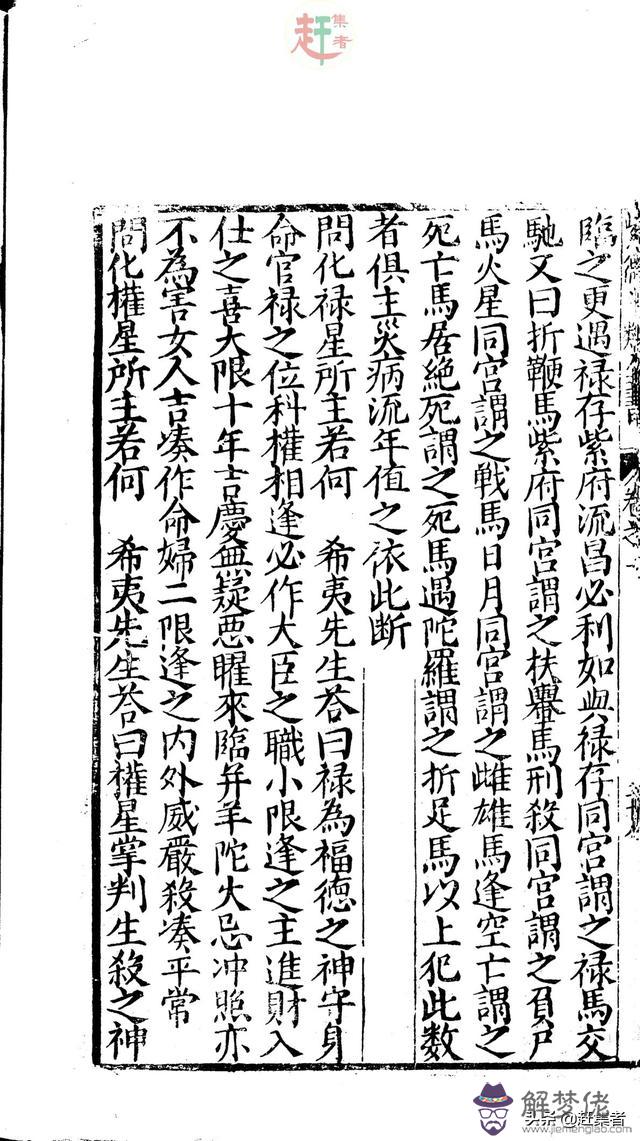 臨之更遇禄存紫府流昌必利如與禄存同宫謂之禄馬交
馳又曰折鞭馬紫府同宫謂之扶轝馬刑殺同宫謂之負尸
馬火星同宫謂之戰馬日月同宫謂之雌雄馬逢空亡謂之
死亡馬居絶死謂之死馬遇陀羅謂之折足馬以上犯此數
者俱主災病流年值之依此断
問化禄星所主若何 希夷先生荅曰禄為福德之神守身
命官禄之位科權相逢必作大臣之職小限逢之主進財入
仕之喜大限十年吉慶無疑悪曜來臨并羊陀火忌冲照亦
不為害女人吉凑作命婦二限逢之内外威嚴殺凑平常
問化權星所主若何 希夷先生荅曰權星掌判生殺之神
赶集者
解梦佬
www.jiemenglab.com
头条@赶集者